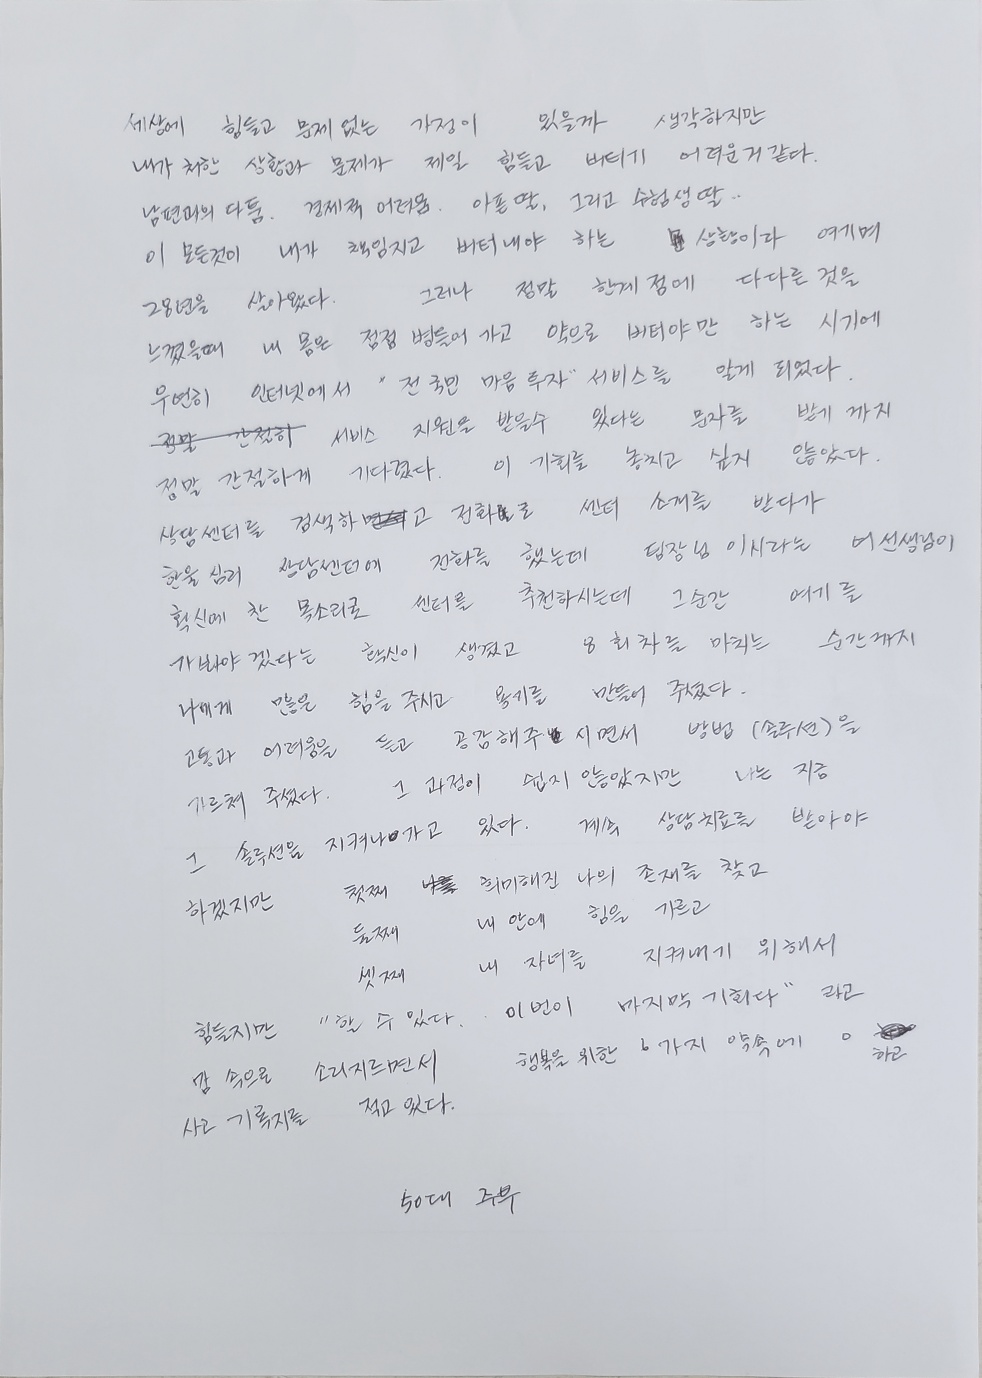 세상에 힘들고 문제 없는 가정이 있을까 생각하지만
내가 처한 상황과 문제가 제일 힘들고 버티기 어려운거 같다.
남편과의 다툼. 경제적 어려움. 아픈 딸, 그리고 수험생 딸..
이 모든것이 내가 책임지고 버텨내야 하는 상황이라 여기며
28년을 살아왔다. 그러나 정말 한계점에 다다른 것을
느꼈을때 내 몸은 점점 병들어 가고 약으로 버텨야만 하는 시기에
우연히 인터넷에서 "전국민 마음투자" 서비스를 알게 되었다.
정말 간절히 서비스 지원을 받을수 있다는 문자를 받기 까지
정말 간절하게 기다렸다. 이 기회를 놓치고 싶지 않았다.
상담센터를 검색하고 전화로 센터 소개를 받다가
한울 심리 상담센터에 전화를 했는데 팀장님 이시라는 여선생님이
확신에 찬 목소리로 센터를 추천하시는데 그순간 여기를
가봐야 겠다는 확신이 생겼고 8회차를 마치는 순간까지
나에게 많은 힘을 주시고 용기를 만들어 주셨다.
고통과 어려움을 듣고 공감해주시면서 방법 (솔루션)을
가르쳐 주셨다. 그 과정이 쉽지 않았지만 나는 지금
그 솔루션을 지켜나가고 있다. 계속 상담치료를 받아야
하겠지만 첫째 희미해진 나의 존재를 찾고
둘째 내 안에 힘을 기르고
셋째 내 자녀를 지켜내기 위해서
힘들지만 "할 수 있다. 이번이 마지막 기회다" 라고
맘 속으로 소리지르면서 행복을 위한 6가지 약속에 o 하고
사고 기록지를 적고 있다.
50대 주부